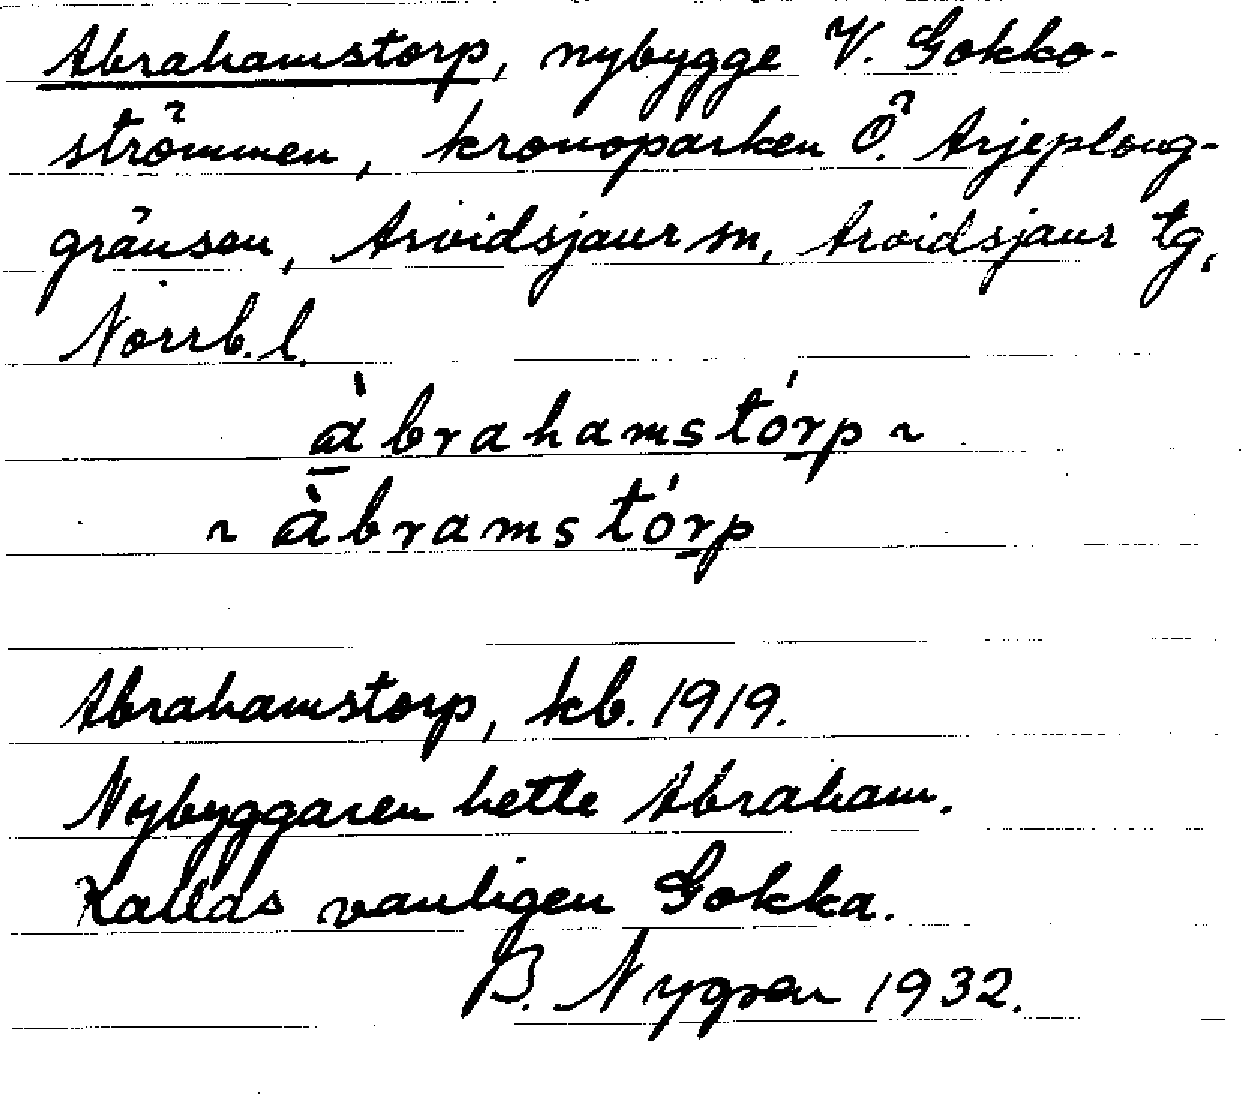 Abrahamstorp, nybygge V. Gokko-
strömmen, kronoparken Ö. Arjeploug-
gränsen, Arvidsjaur sn, Arvidsjaur tg,
Norrb. l.
àbrahamstórp ~
~ àbramstórp
Abrahamstorp, kb. 1919.
Nybyggaren hette Abraham.
Kallas vanligen Gokka.
B. Nygren 1932.